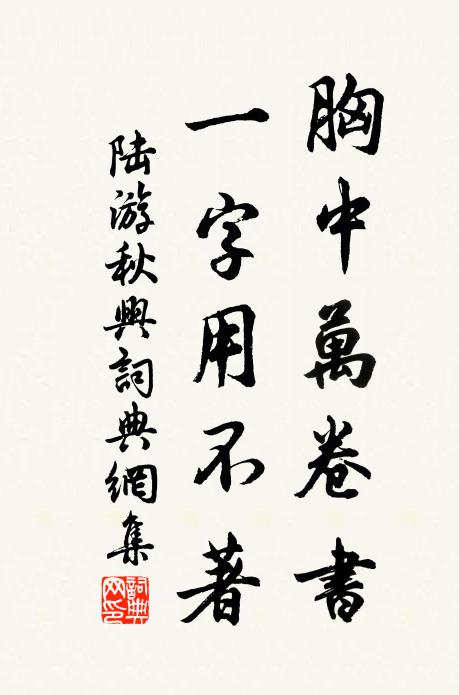 胸中萬卷書
一字用不著
陆游秋興詞典網集
詞典
网印